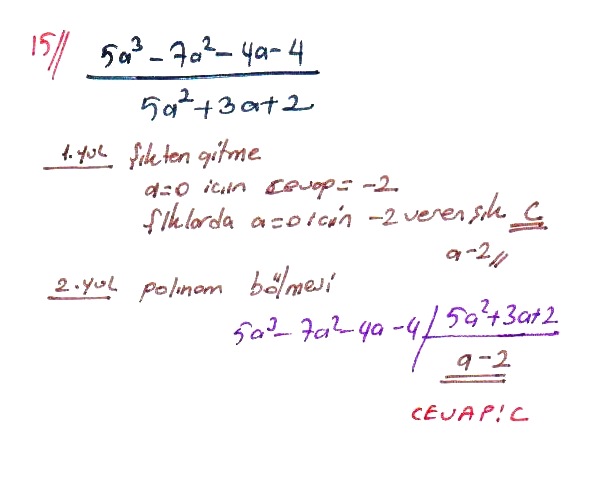 15// 5a³ - 7a² - 4a - 4
5a² + 3a + 2
1. yol şıkten gitme
a=0 için cevap = -2
şıklarda a=0 için -2 veren şık C
a-2//
2. yol polinom bölmesi
5a³ - 7a² - 4a - 4 / 5a² + 3a + 2
a-2
CEVAP: C